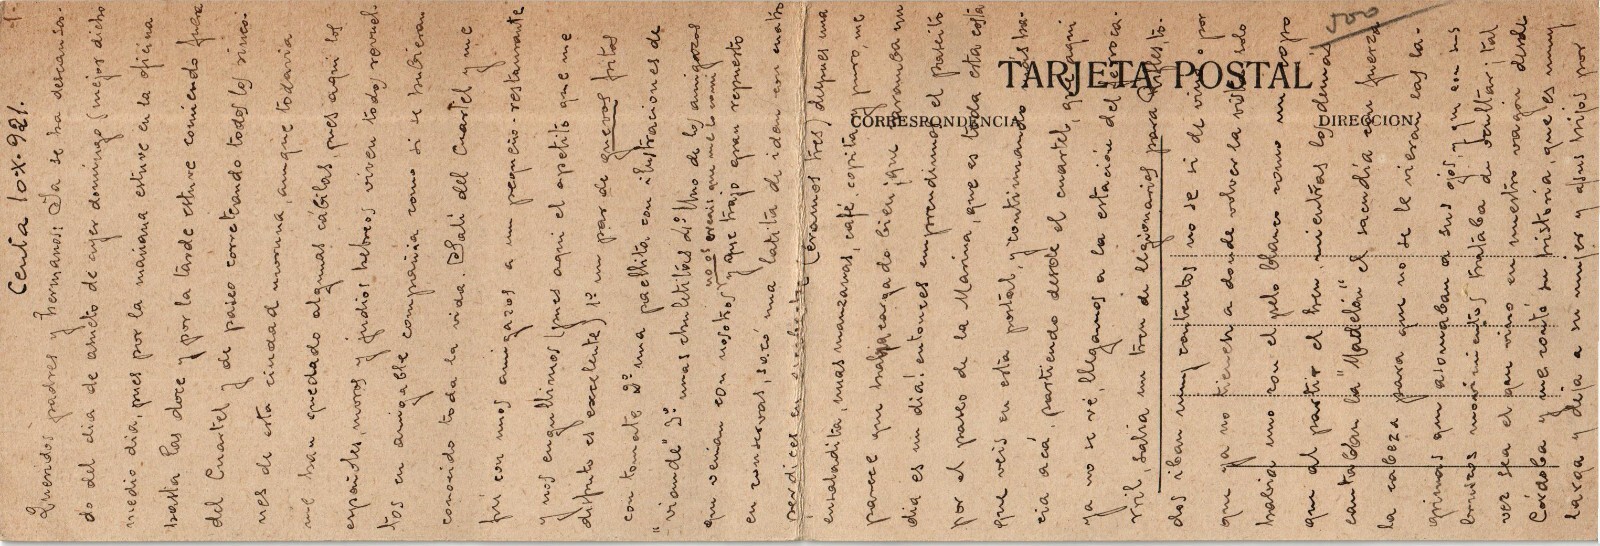 -1-
Ceuta 10-X-921.
Queridos padres y hermanos: Ya se ha descansa-
do del dia de asueto de ayer domingo (mejor dicho
medio dia, pues por la mañana estuve en la oficina
hasta las doce y por la tarde estuve comiendo fuera
del Cuartel y de paseo correteando todos los rinco-
nes de esta ciudad moruna, aunque todavia
me han quedado algunas cábilas, pues aqui los
españoles, moros y judios hebreos viven todos revuel-
tos en amigable compañia como si se hubieran
conocido toda la vida. Sali del Cuartel y me
fui con unos amigazos a un pequeño-restaurante
y nos engullimos (pues aqui el apetito que me
disfruto es excelente) 1º un par de guevos fritos
con tomate 2º una paellita con ilustraciones de
"viande" 3º unas chuletitas di: Uno de los amigazos
no os creais que me lo comi
que venian con nosotros y que trajo gran repuesto
en conservas, sacó una latita de idem con cuatro
perdices en (eramos tres) despues una
ensaladita, unas manzanas, café, copita, puro, me
parece que para un
dia es un dia! entonces emprendimos el paseito
por el paseo de la Marina, que es toda esta
que veis en esta postal, y continuando hacia
acá, partiendo desde el cuartel, que aqui
ya no se vé, llegamos a la estación del ferroca-
rril, salia un tren de legionarios para
dos iban muy contentos no se si de vino o por
que ya no tienen a donde volver la vista
habia uno con el pelo blanco como un copo
que al partir el tren, mientras los demas
cantaban la "Madelón" el escondia con fuerza
la cabeza para que no se le vieran las la-
grimas que asomaban a sus ojos, y que con sus
movimientos trataba de ocultar; tal
vez sea el que vino en nuestro vagón desde
Córdoba y me contó su historia que es muy
larga y deja a su mujer y a sus hijos por
TARJETA POSTAL
CORRESPONDENCIA
DIRECCION
500